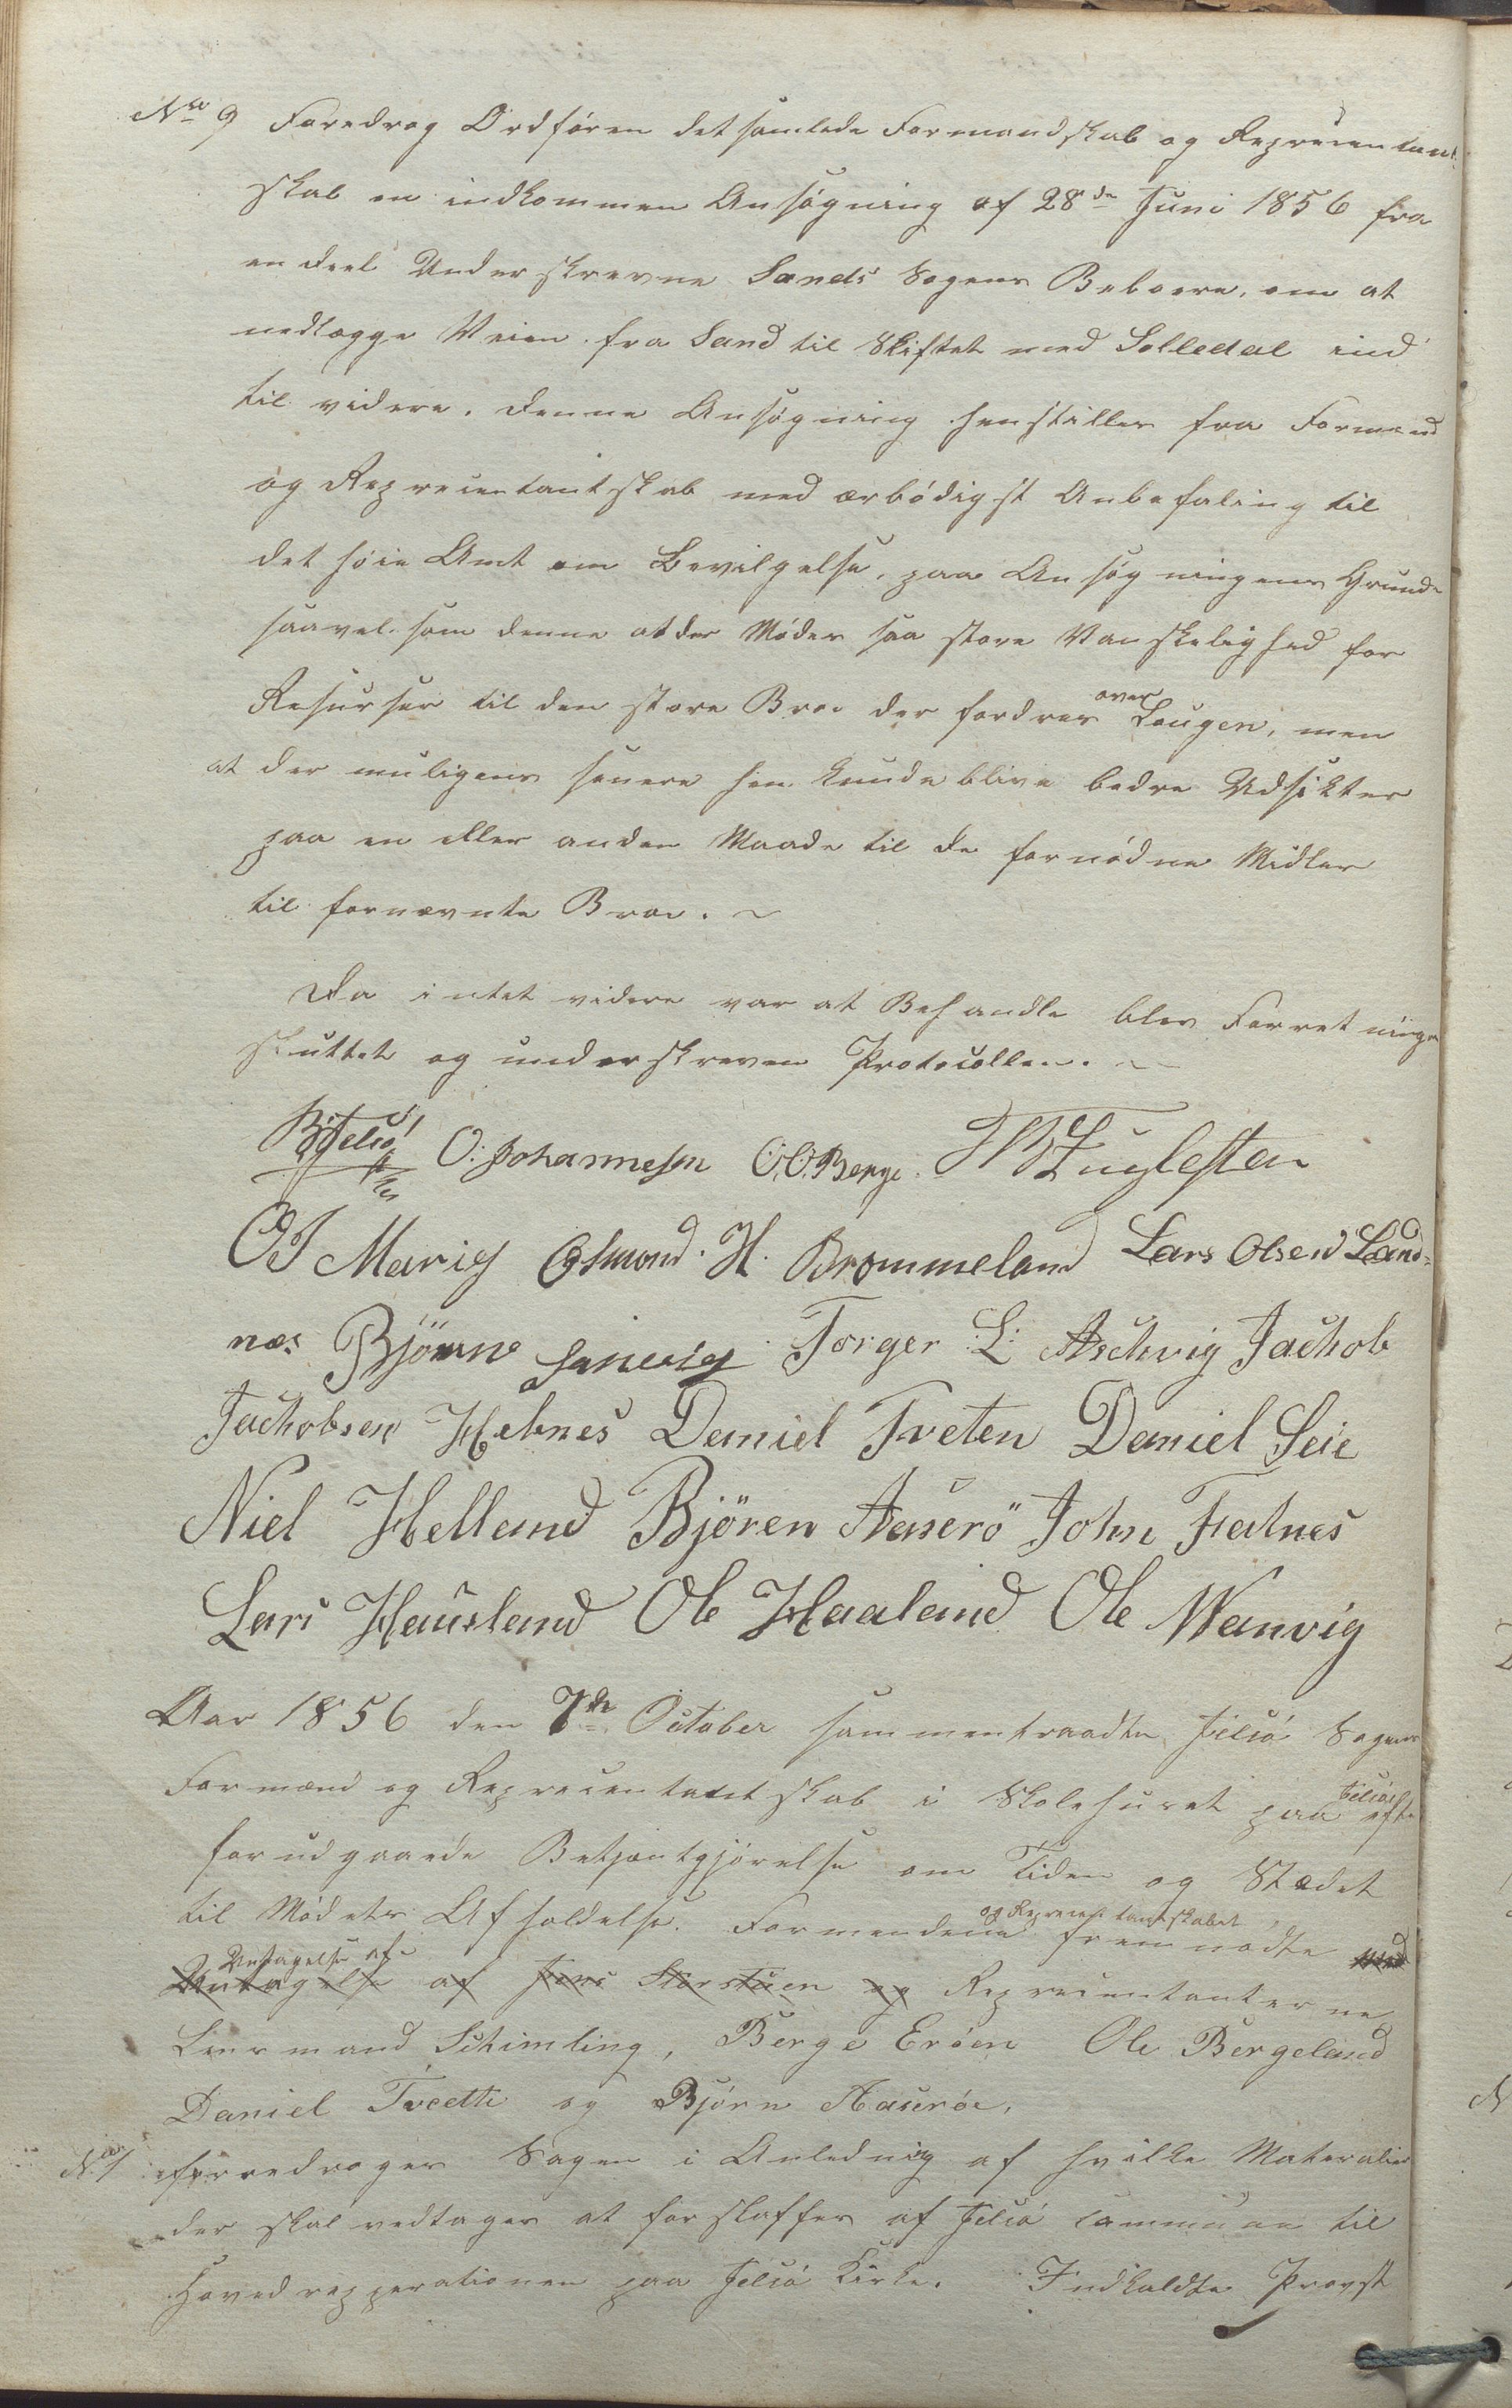 No 9 Foredrog Ordføren det samlede Formandskab og Repræsentant
skab en indkommen Ansøgning af 28de Juni 1856 fra
en deel Underskrevne Sands Sogens Beboere, om at
nedlægge Veien fra Sand til Skiftet med Solledal ind
til videre. Denne Ansøgning henstilles fra Formænd
og Repræsentantskab med ærbødigst Anbefaling til
det høie Amt om Bevilgelse, paa Ansøgningens Grunde
saavel som denne at der Møder saa store Vanskelighed for
Resurser til den store Broe der fordres over Lougen, men
at der muligens senere hen kunde blive bedre Udsikter
paa en eller anden Maade til de fornødne Midler
til fornævnte Broe. ~
Da intet videre var at Behandle blev Forretningen
sluttet og underskreven Protocollen.
O. Johannesen O. O. Berge.
O J Marvig Osmond. H. Brommeland Lars Olsen Sand-
næs Björne Torger L: Aschvig Jachob
Jachobsen Hebnes Daniel Tveten Daniel Leie
Niel Helland Björen Aaserö John Fatnes
Lars Hausland Ole Haaland Ole Wanvig
Aar 1856 den 7de October sammentraadte Jelsø Sogens
Formænd og Repræsentantskab i Skolehuset paa Jelsø efter
forudgaaede Bekjæntgjørelse om Tiden og Stædet
til Mødets Afholdelse. Formendene og Repræsentantskabet fremmødte med
Untagelse af Untagelse af Jens Storstuen og Repræsentanterne
Lensmand Schimling, Berge Erøen Ole Bergeland
Daniel Tveette og Bjørn Aaserøe,
No 1 foredroges Sagen i Anledning af hvilke Materalier
der skal vedtages at forskaffes af Jelsø Commune til
Hovedrepperationen paa Jelsø Kirke. Indkaldte Provst